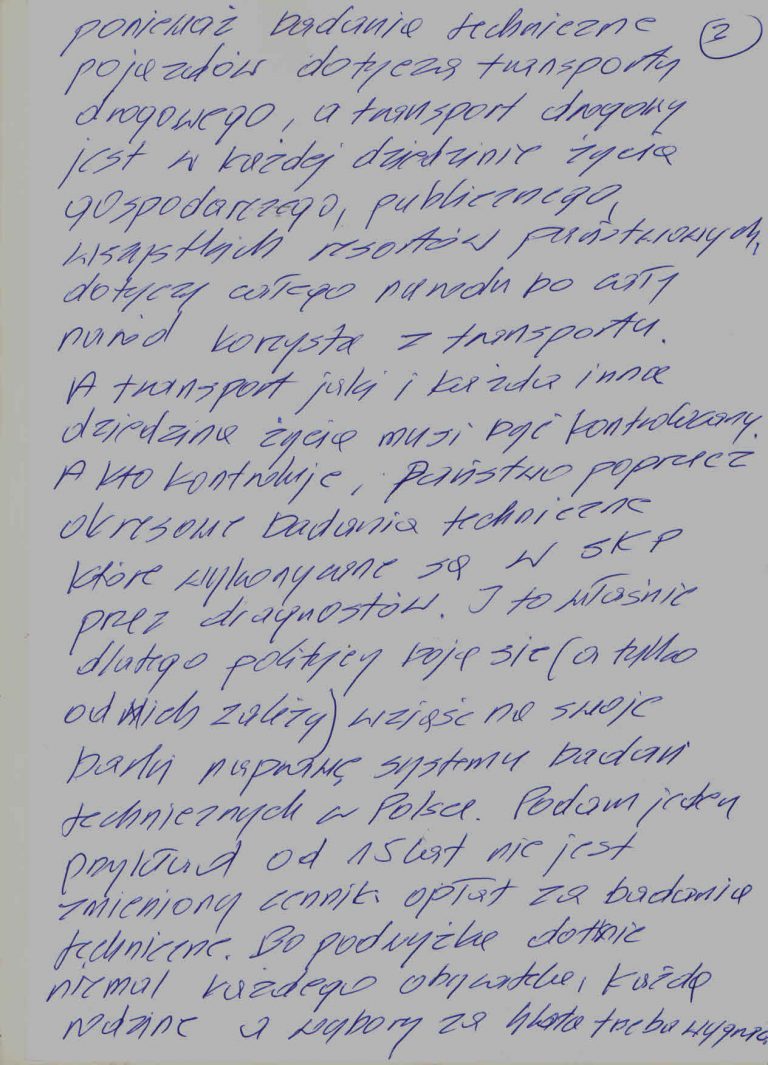 ponieważ badania techniczne 2
pojazdów dotyczą transportu
drogowego, a transport drogowy
jest w każdej dziedzinie życia
gospodarczego, publicznego,
wszystkich resortów państwowych,
dotyczy całego narodu bo cały
naród korzysta z transportu.
A transport jak i każda inna
dziedzina życia musi być kontrolowany.
A kto kontroluje, Państwo poprzez
okresowe badania techniczne
które wykonywane są w SKP
przez diagnostów. I to właśnie
dlatego politycy boją się (a tylko
od Nich zależy) wziąść na swoje
barki naprawę systemu badań
technicznych w Polsce. Podam jeden
przykład od 15 lat nie jest
zmieniony cennik opłat za badania
techniczne. Bo podwyżka dotknie
niemal każdego obywatela, każdą
rodzinę a wybory za 4 lata trzeba wygrać